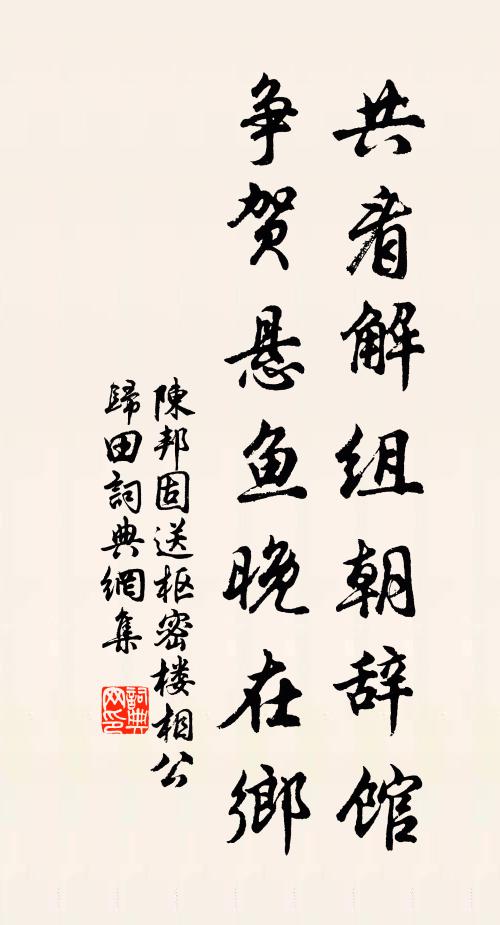 共看解组朝辞馆
争贺悬鱼晚在鄉
陳邦固送枢密楼相公
歸田詞典網集
詞典网印